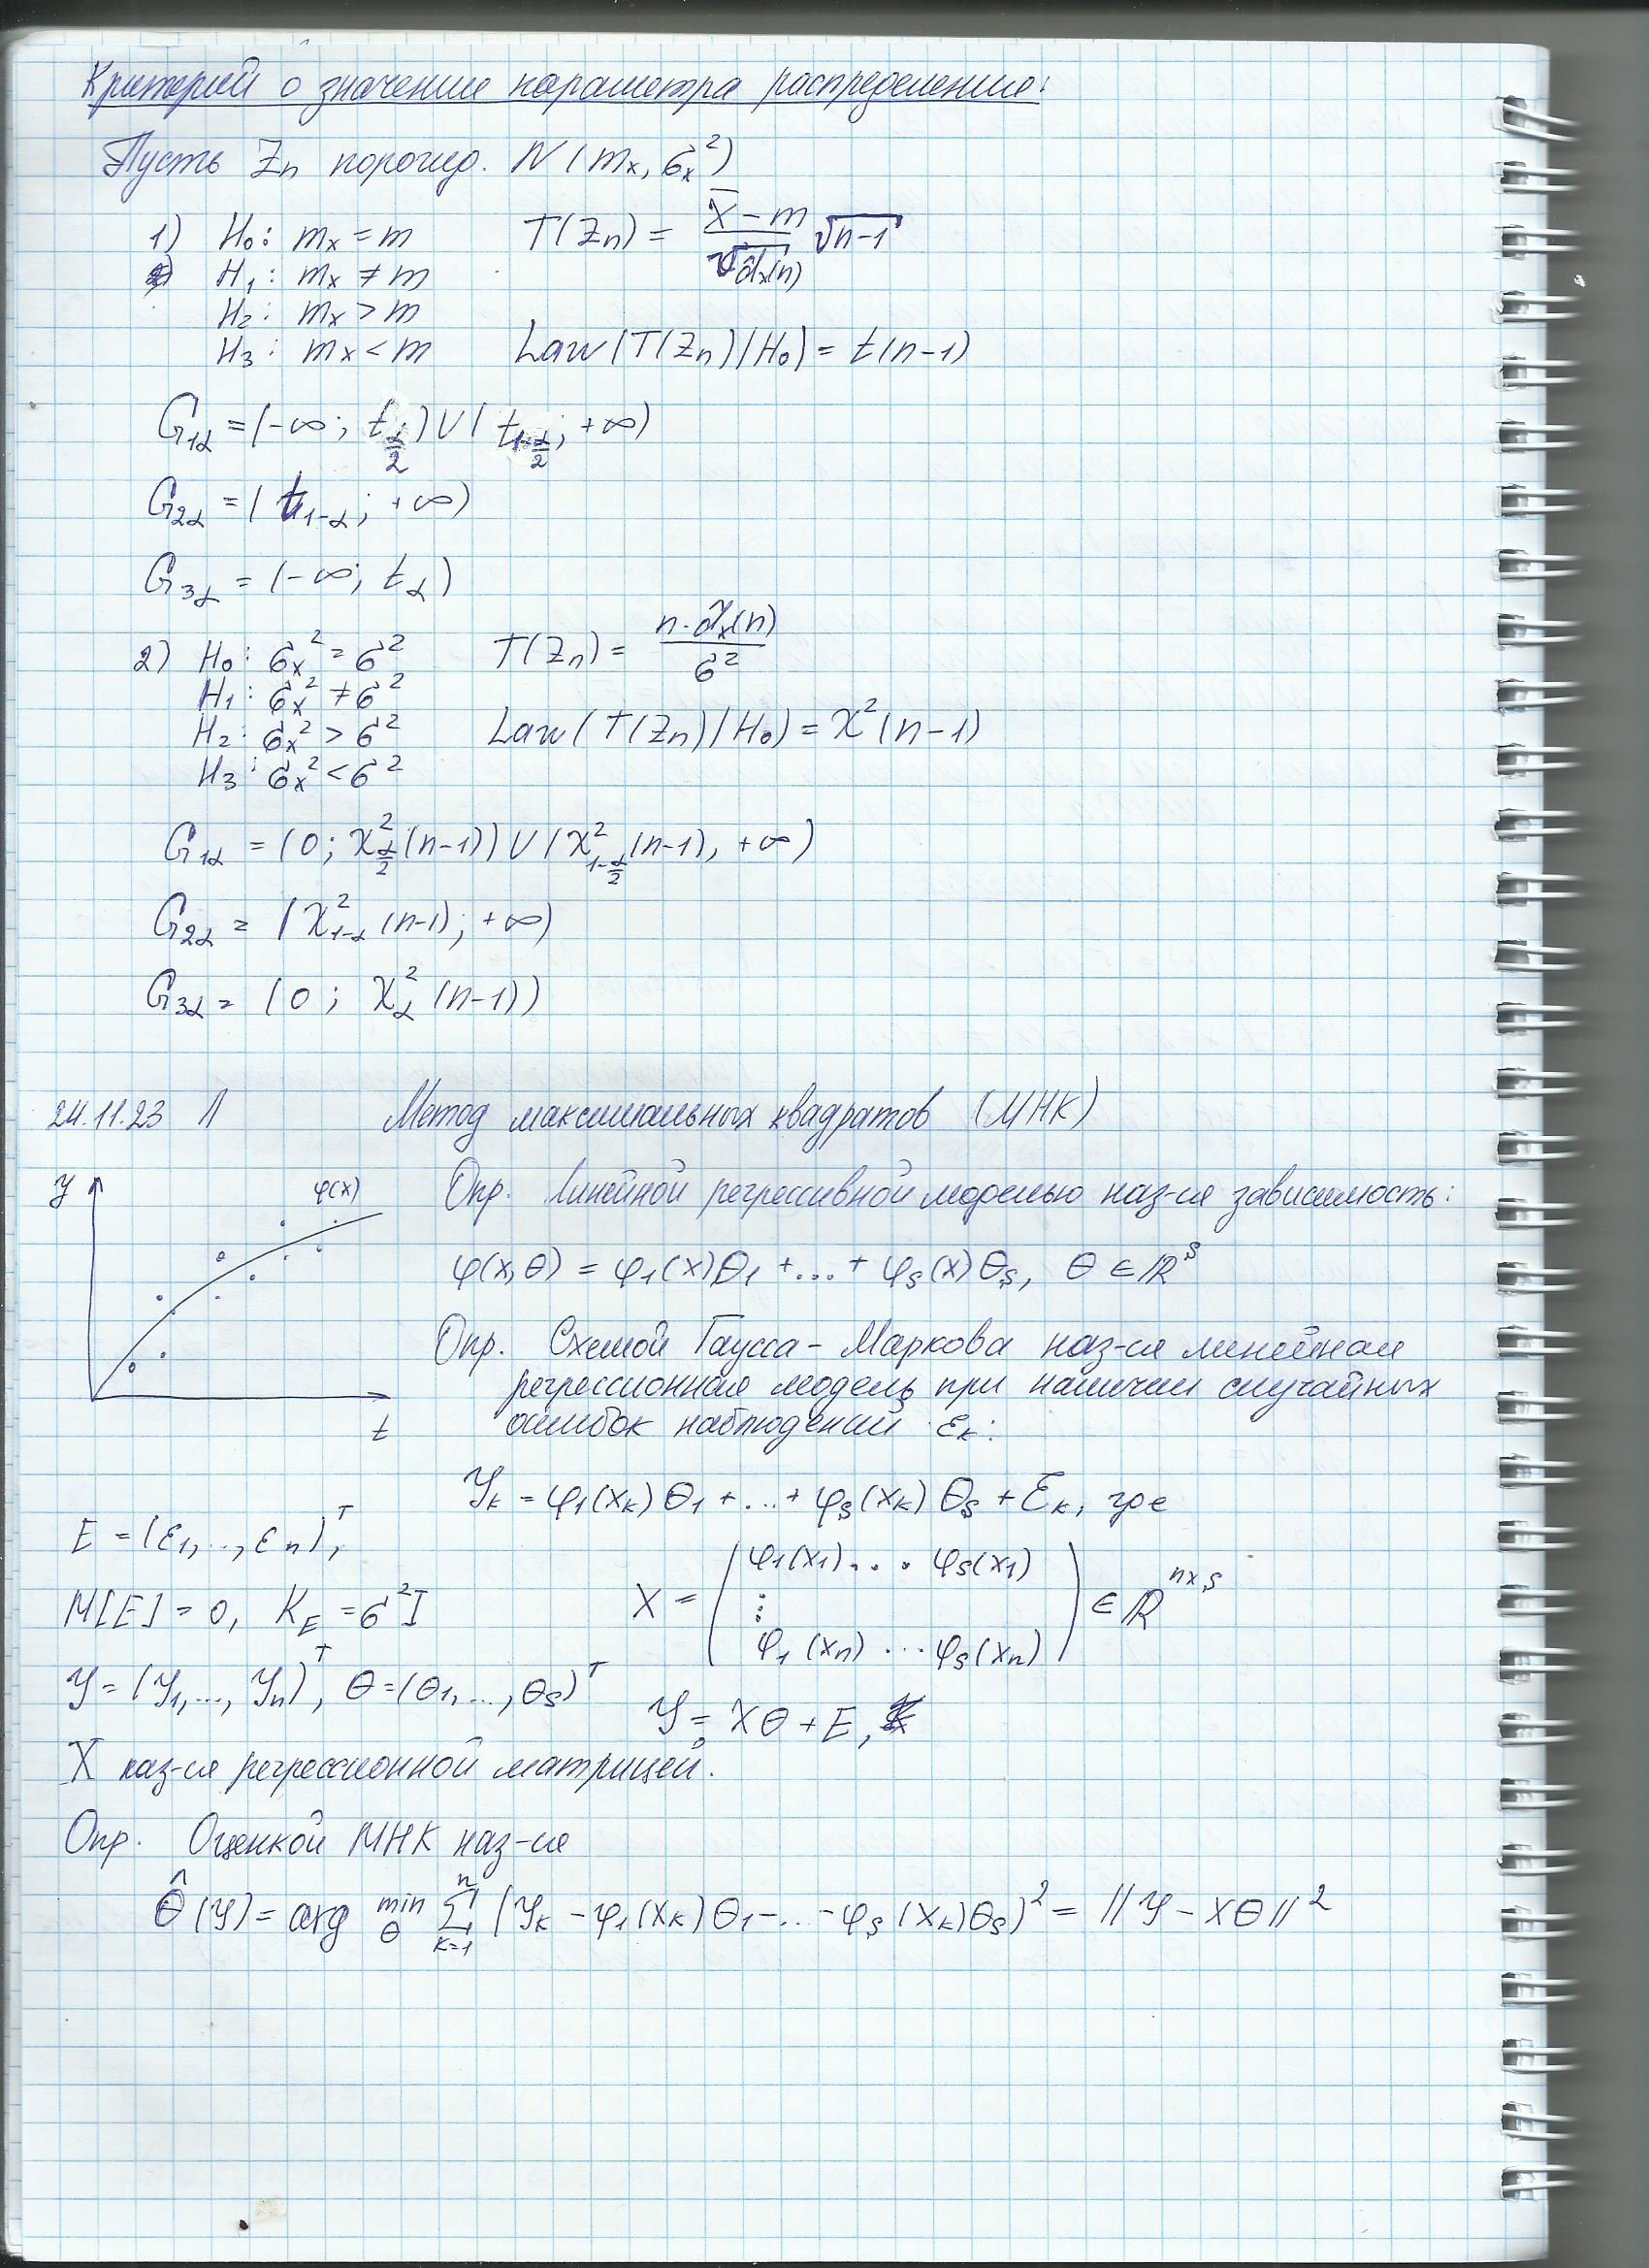 Критерий о значении параметра распределения:
Пусть Zn порожд. N(mₓ, σₓ²)
1) H₀: mₓ = m T(Zn) = (X̄ − m)/√(d̂ₓ(n)) √(n−1)
H₁: mₓ ≠ m
H₂: mₓ > m
H₃: mₓ < m Law(T(Zn)|H₀) = t(n−1)
G₁α = (−∞; t_{α/2}) ∪ (t_{1−α/2}; +∞)
G₂α = (t_{1−α}; +∞)
G₃α = (−∞; t_α)
2) H₀: σₓ² = σ² T(Zn) = n·d̂ₓ(n)/σ²
H₁: σₓ² ≠ σ²
H₂: σₓ² > σ² Law(T(Zn)|H₀) = χ²(n−1)
H₃: σₓ² < σ²
G₁α = (0; χ²_{α/2}(n−1)) ∪ (χ²_{1−α/2}(n−1), +∞)
G₂α = (χ²_{1−α}(n−1); +∞)
G₃α = (0; χ²_α(n−1))
24.11.23 Л Метод максимальных квадратов (МНК)
y φ(x) t
Опр. Линейной регрессивной моделью наз-ся зависимость:
φ(x,θ) = φ₁(x)θ₁ + ... + φₛ(x)θₛ, θ ∈ ℝˢ
Опр. Схемой Гаусса-Маркова наз-ся линейная
регрессионная модель при наличии случайных
ошибок наблюдений εₖ:
Yₖ = φ₁(xₖ)θ₁ + ... + φₛ(xₖ)θₛ + εₖ, где
E = (ε₁, .., εn)ᵀ,
M[E] = 0, K_E = σ²I
X = (φ₁(x₁) ... φₛ(x₁)
⋮
φ₁(xn) ... φₛ(xn)) ∈ ℝ^{n×s}
Y = (Y₁, ..., Yn)ᵀ, θ = (θ₁, ..., θₛ)ᵀ
Y = Xθ + E,
X наз-ся регрессионной матрицей.
Опр. Оценкой МНК наз-ся
θ̂(Y) = arg min_θ Σ_{k=1}^{n} (Yₖ − φ₁(xₖ)θ₁ − ... − φₛ(xₖ)θₛ)² = ||Y − Xθ||²